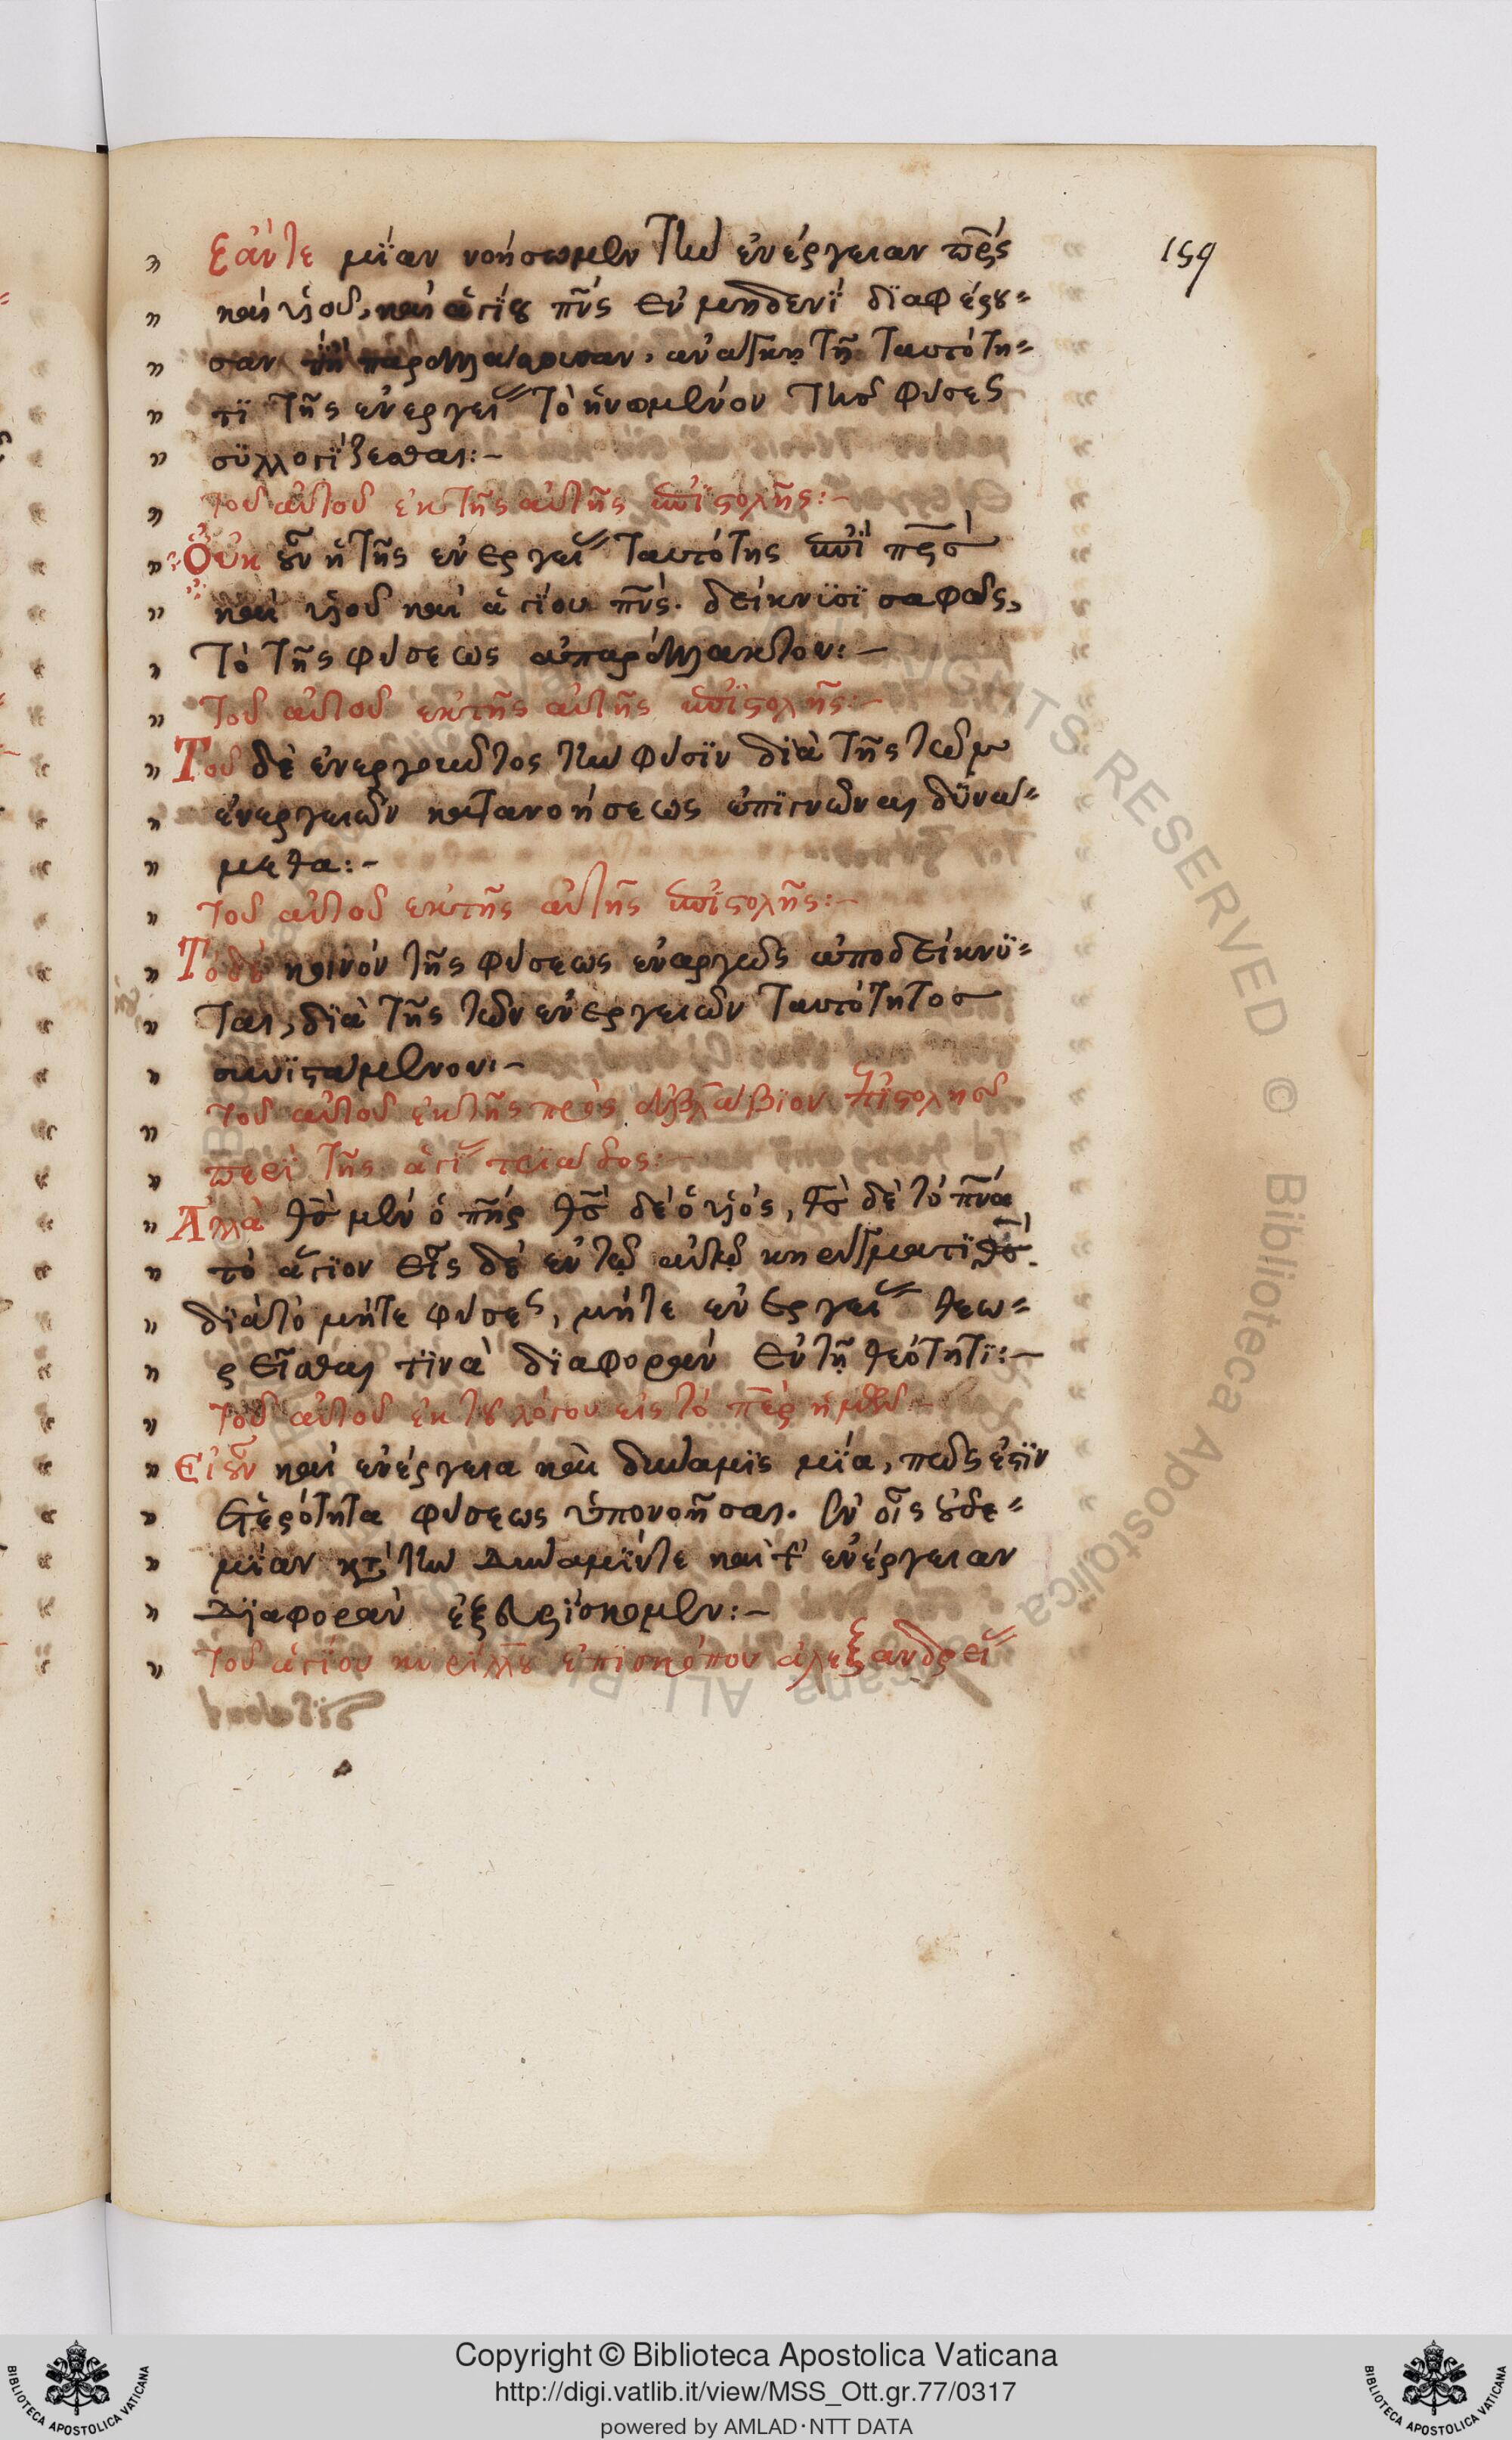 Ἐάν τε μΐαν νοήσωμεν τὴν ἐνέργειαν πρς
καὶ υἱοῦ, καὶ ἁγίου πνς ἐν μηδενῒ δϊαφέρου=
σαν ἢ παραλλάσσουσαν, ἀνάγκη τῇ ταυτότη=
τϊ τῆς ἐνεργείας τὸ ἡνωμένον τῆς φύσεως
συλλογΐζεσθαι:–
τοῦ αὐτοῦ ἐκ τῆς αὐτῆς ἐπϊστολῆς:–
Οὐκ οὖν ἡ τῆς ἐνεργείας ταυτότης ἐπῒ πρς
καὶ υἱοῦ καὶ ἁγίου πνς. δείκνυσϊ σαφῶς,
τὸ τῆς φύσεως ἀπαράλλακτον:–
τοῦ αὐτοῦ ἐκ τῆς αὐτῆς ἐπϊστολῆς:–
Τοῦ δὲ ἐνεργοῦντος τὴν φύσϊν δϊὰ τῆς τῶν
ἐνεργειῶν κατανοήσεως ἐπϊγνῶναι δυνά=
μεθα:–
τοῦ αὐτοῦ ἐκ τῆς αὐτῆς ἐπϊστολῆς:–
Τὸ δὲ κοινὸν τῆς φύσεως ἐναργῶς ἀποδείκνυ=
ται, δϊὰ τῆς τῶν ἐνεργειῶν ταυτότητος
συνϊστάμενον:–
τοῦ αὐτοῦ ἐκ τῆς πρὸς ἀβλάβϊον ἐπϊστολῆς
περὶ τῆς ἁγίας τρϊάδος:–
Ἀλλὰ θς μὲν ὁ πηρ θς δὲ ὁ υἱός, θς δὲ τὸ πνα
τὸ ἅγϊον εἷς δὲ ἐν τῷ αὐτῷ κηρύγματϊ θς.
δϊὰ τὸ μήτε φύσεως, μήτε ἐνεργείας θεω=
ρεῖσθαι τϊνὰ δϊαφορὰν ἐν τῇ θεότητϊ:–
τοῦ αὐτοῦ ἐκ τοῦ λόγου εἰς τὸ περ ἡμῶν:–
Εἰ οὖν καὶ ἐνέργεια καὶ δύναμϊς μΐα, πῶς ἐστϊν
ἑτερότητα φύσεως ὑπονοῆσαι. ἐν οἷς οὐδε=
μΐαν κατὰ τὴν δύναμΐν τε καὶ τὴν ἐνέργειαν
δϊαφορὰν ἐξευρΐσκομεν:–
τοῦ ἁγίου κυρίλλου ἐπϊσκόπου ἀλεξανδρείας
159
ALL RIGHTS RESERVED © Biblioteca Apostolica Vaticana
Copyright © Biblioteca Apostolica Vaticana
http://digi.vatlib.it/view/MSS_Ott.gr.77/0317
powered by AMLAD·NTT DATA
BIBLIOTECA APOSTOLICA VATICANA
BIBLIOTECA APOSTOLICA VATICANA